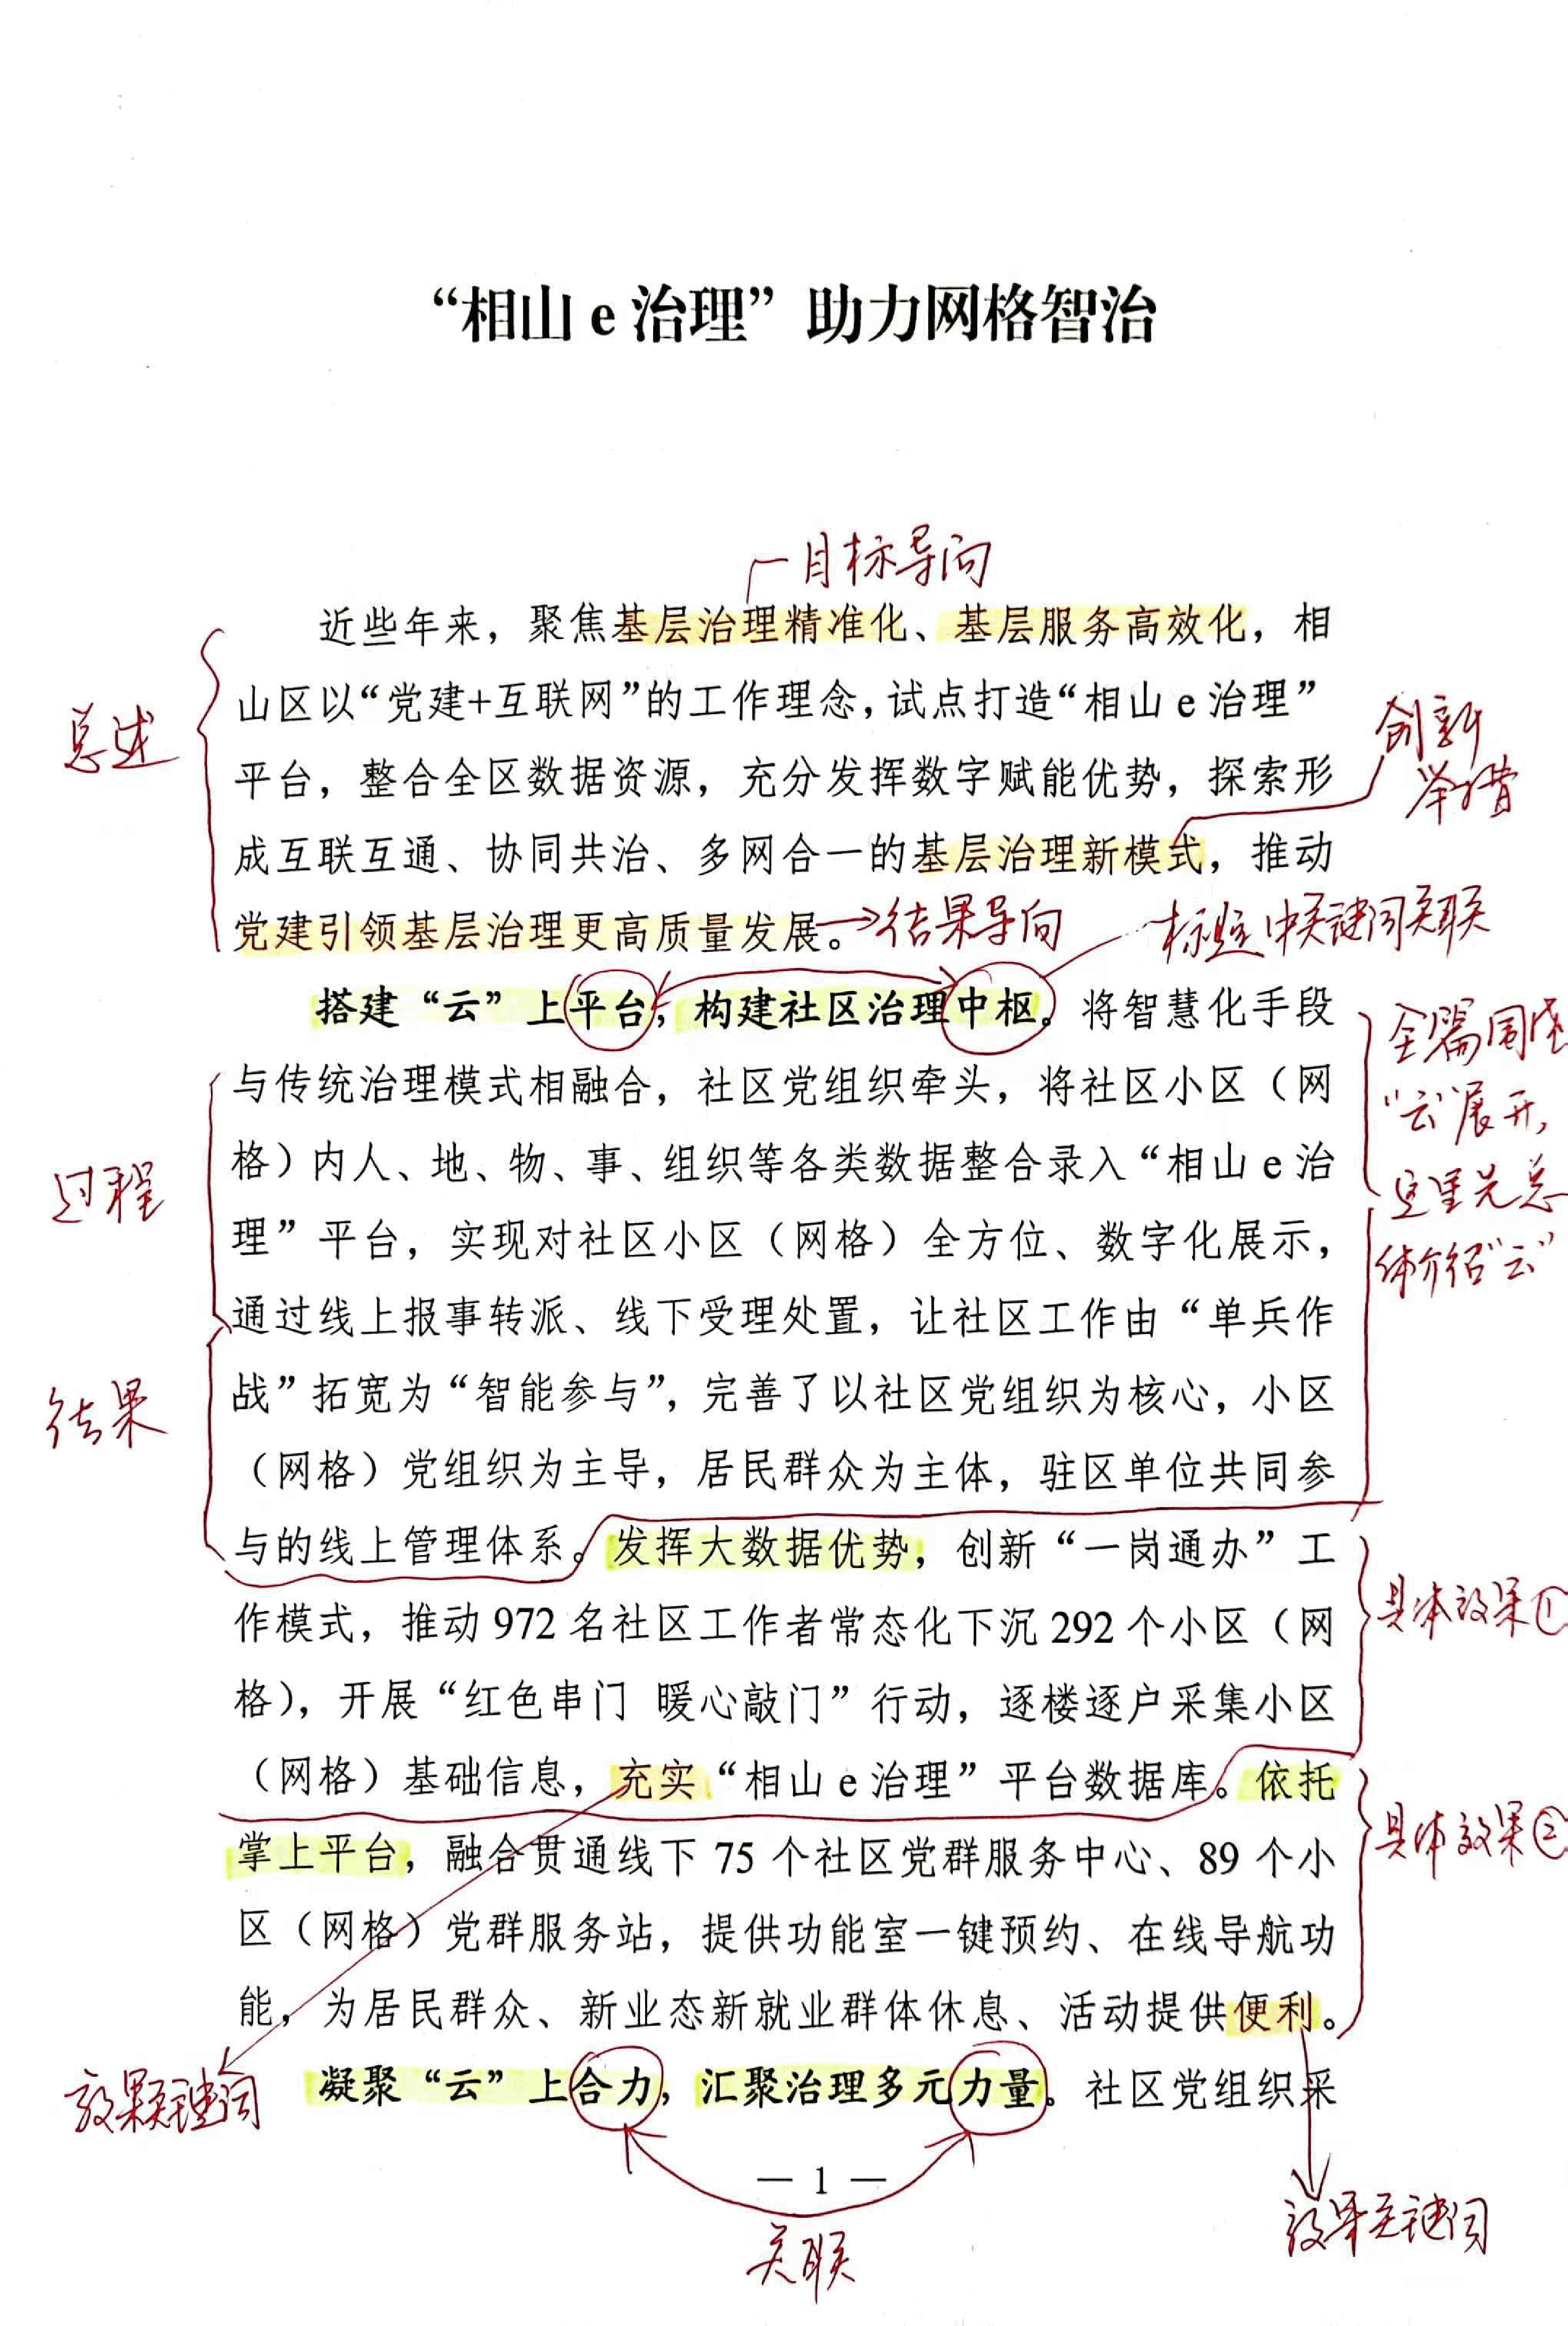 “相山 e 治理”助力网格智治
目标导向
近些年来，聚焦基层治理精准化、基层服务高效化，相
山区以“党建+互联网”的工作理念，试点打造“相山 e 治理”
平台，整合全区数据资源，充分发挥数字赋能优势，探索形
成互联互通、协同共治、多网合一的基层治理新模式，推动
党建引领基层治理更高质量发展。
总述
创新
举措
结果导向
标题中关键词关联
搭建“云”上平台，构建社区治理中枢。将智慧化手段
与传统治理模式相融合，社区党组织牵头，将社区小区（网
格）内人、地、物、事、组织等各类数据整合录入“相山 e 治
理”平台，实现对社区小区（网格）全方位、数字化展示，
通过线上报事转派、线下受理处置，让社区工作由“单兵作
战”拓宽为“智能参与”，完善了以社区党组织为核心，小区
（网格）党组织为主导，居民群众为主体，驻区单位共同参
与的线上管理体系。发挥大数据优势，创新“一岗通办”工
作模式，推动 972 名社区工作者常态化下沉 292 个小区（网
格），开展“红色串门 暖心敲门”行动，逐楼逐户采集小区
（网格）基础信息，充实“相山 e 治理”平台数据库。依托
掌上平台，融合贯通线下 75 个社区党群服务中心、89 个小
区（网格）党群服务站，提供功能室一键预约、在线导航功
能，为居民群众、新业态新就业群体休息、活动提供便利。
过程
结果
全篇围绕
“云”展开，
这里先总
体介绍“云”
具体效果①
具体效果②
凝聚“云”上合力，汇聚治理多元力量。社区党组织采
效果关键词
— 1 —
关联
效果关键词